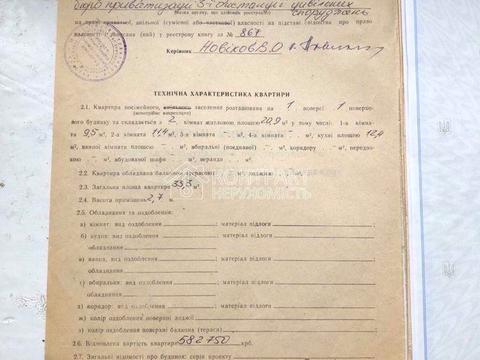 бюро приватизації
на праві приватної, спільної (сумісної або часткової) власності на підставі (відмітка про право
власності) у реєстрову книгу за № 867
Керівник Новіков В.О.
ТЕХНІЧНА ХАРАКТЕРИСТИКА КВАРТИРИ
2.1. Квартира посімейного, заселення розташована на 1 поверсі 1 поверхо-
(непотрібне викреслити)
вого будинку та складається з 2 кімнат жилою площею 20,9 м², у тому числі: 1-а кімна-
та 9,5 м², 2-а кімната 11,4 м², 3-я кімната – м², 4-а кімната – м², кухні площею 12,4
м², ванної кімнати – м², вбиральні (поєднаної) – м², коридору – м², передпо-
кою – м², вбудованої шафи – м², веранди – м².
2.2. Квартира обладнана балконом (терасою) – м², лоджією – м².
2.3. Загальна площа квартири 33,3 м².
2.4. Висота приміщень 2,7 м.
2.5. Обладнання та оздоблення:
а) кімнат: вид оздоблення ; матеріал підлоги
б) кухня: вид оздоблення ; матеріал підлоги
обладнання
в) ванна, вид оздоблення ; матеріал підлоги
обладнання
г) вбиральня: вид оздоблення ; матеріал підлоги
обладнання
д) коридор: вид оздоблення ; матеріал підлоги
ж) колір оздоблення поверхні лоджії
з) колір оздоблення поверхні балкона (тераси)
2.6. Відновлена вартість квартири 582750 крб.
2.7. Загальні відомості про будинок: серія проекту
НЕРУХОМІСТЬ